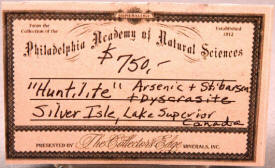 From the
Collection of the
Established
1812
Philadelphia Academy of Natural Sciences
$750,-
"Huntilite" Arsenic + Stibarsen
+ Dyscrasite
Silver Isle, Lake Superior
Canada
PRESENTED BY The Collector's Edge MINERALS, INC.